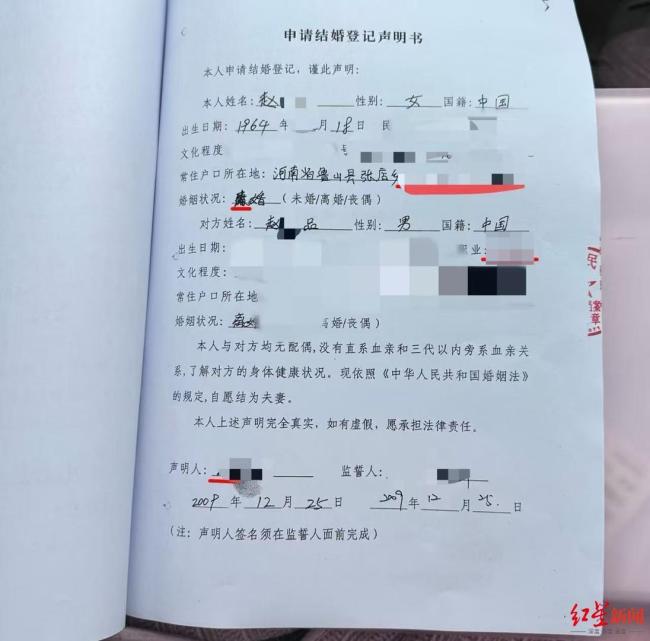 申请结婚登记声明书
本人申请结婚登记，谨此声明：
本人姓名：赵 性别：女 国籍：中国
出生日期：1964年 月18日 民
文化程度
常住户口所在地：河南省鲁山县张店乡
婚姻状况： 婚（未婚/离婚/丧偶）
对方姓名：赵 品 性别：男 国籍：中国
出生日期： 业：
文化程度：
常住户口所在地
婚姻状况： 离婚/丧偶）
本人与对方均无配偶，没有直系血亲和三代以内旁系血亲关
系，了解对方的身体健康状况。现依照《中华人民共和国婚姻法》
的规定，自愿结为夫妻。
本人上述声明完全真实，如有虚假，愿承担法律责任。
声明人： 监誓人：
2009年12月25日 2009年12月25日
（注：声明人签名须在监誓人面前完成）
民
章
红星新闻